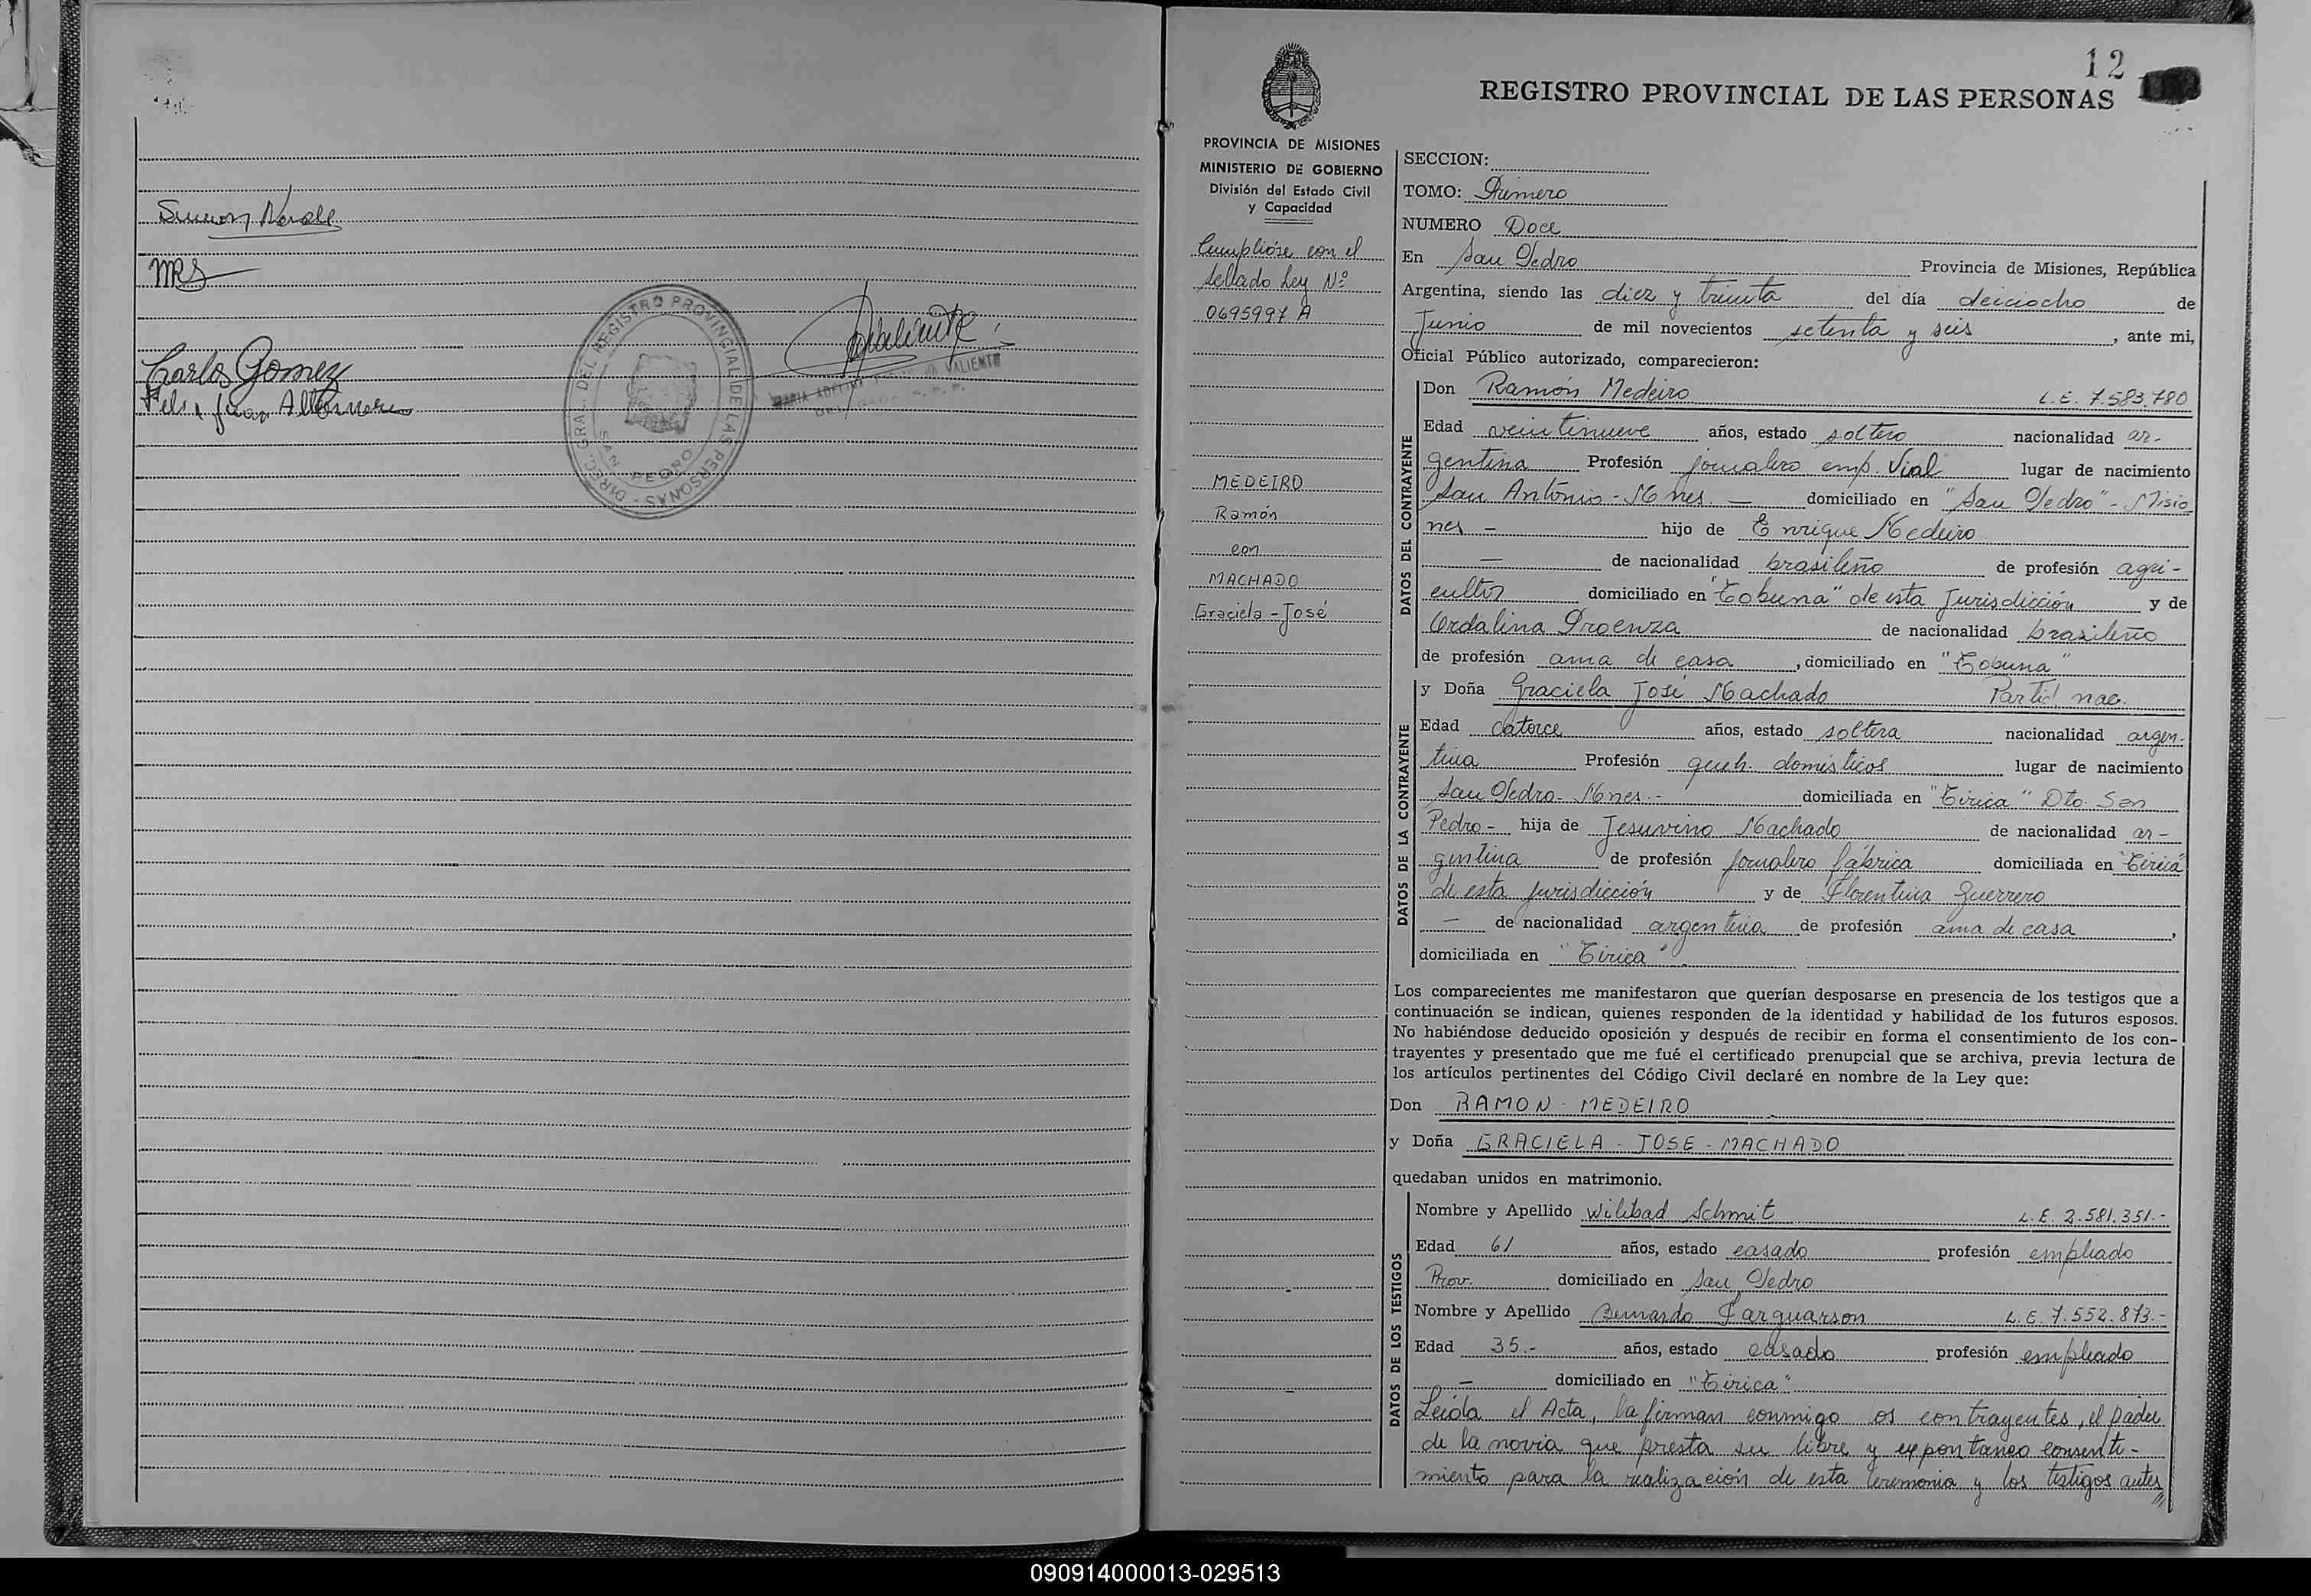 Carlos Gomez
DIREC. GRAL. DEL REGISTRO PROVINCIAL DE LAS PERSONAS
SAN PEDRO
12
REGISTRO PROVINCIAL DE LAS PERSONAS
PROVINCIA DE MISIONES
MINISTERIO DE GOBIERNO
División del Estado Civil
y Capacidad
Cumplióse con el
sellado Ley Nº
0695997 A
MEDEIRO
Ramón
con
MACHADO
Graciela - José
SECCION:
TOMO: Primero
NUMERO Doce
En San Pedro Provincia de Misiones, República
Argentina, siendo las diez y treinta del día deiciocho de
Junio de mil novecientos setenta y seis, ante mi,
Oficial Público autorizado, comparecieron:
DATOS DEL CONTRAYENTE
Don Ramón Medeiro L.E. 7.583.780
Edad veintinueve años, estado soltero nacionalidad ar-
gentina Profesión jornalero emp. Vial lugar de nacimiento
San Antonio - Mnes. — domiciliado en "San Pedro" - Misio
nes - hijo de Enrique Medeiro
— de nacionalidad brasileño de profesión agri-
cultor domiciliado en "Tobuna" de esta Jurisdicción y de
Ordalina Proenza de nacionalidad brasileño
de profesión ama de casa, domiciliado en "Tobuna"
DATOS DE LA CONTRAYENTE
y Doña Graciela José Machado Partid nac.
Edad catorce años, estado soltera nacionalidad argen-
tina Profesión queh. domésticos lugar de nacimiento
San Pedro - Mnes.- domiciliada en "Tirica" Dto. San
Pedro - hija de Jesuvino Machado de nacionalidad ar-
gentina de profesión jornalero fábrica domiciliada en "Tirica"
de esta jurisdicción y de Florentina Guerrero
— de nacionalidad argentina de profesión ama de casa,
domiciliada en "Tirica"
Los comparecientes me manifestaron que querían desposarse en presencia de los testigos que a
continuación se indican, quienes responden de la identidad y habilidad de los futuros esposos.
No habiéndose deducido oposición y después de recibir en forma el consentimiento de los con-
trayentes y presentado que me fué el certificado prenupcial que se archiva, previa lectura de
los artículos pertinentes del Código Civil declaré en nombre de la Ley que:
Don RAMON - MEDEIRO
y Doña GRACIELA - JOSE - MACHADO
quedaban unidos en matrimonio.
DATOS DE LOS TESTIGOS
Nombre y Apellido Wilibad Schmit L.E. 2.581.351.-
Edad 61 años, estado casado profesión empleado
Prov. domiciliado en San Pedro
Nombre y Apellido Bernardo Farquarson L.E. 7.552.873.-
Edad 35.- años, estado casado profesión empleado
— domiciliado en "Tirica"
Leída el Acta, la firman conmigo os contrayentes, el padre
de la novia que presta su libre y expontaneo consenti-
miento para la realización de esta ceremonia y los testigos antes
090914000013-029513